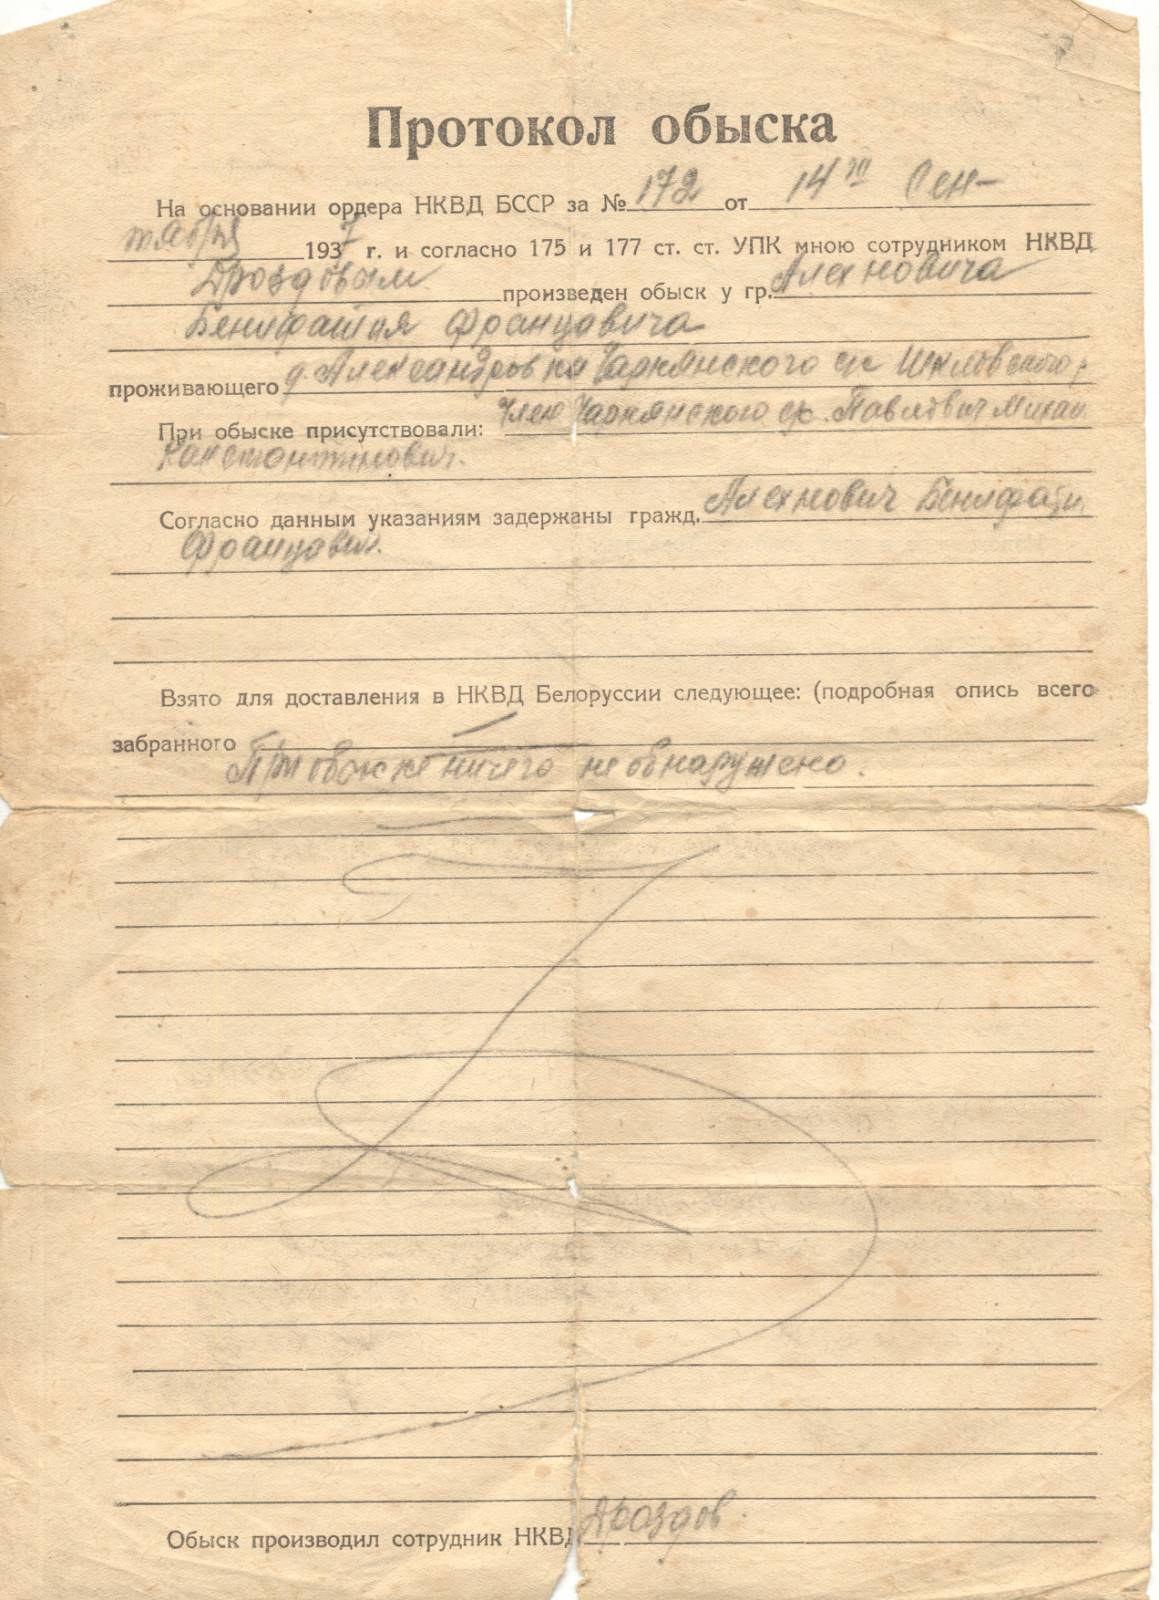 Протокол обыска
На основании ордера НКВД БССР за № 172 от 14 Сен-
тября 1937 г. и согласно 175 и 177 ст. ст. УПК мною сотрудником НКВД
Дроздовым произведен обыск у гр. Алехновича
Бенифатия Францовича
проживающего д. Александровка Чаркянского с/с Шкловского р
При обыске присутствовали: Член Чаркянского с/с. Павлович Михаи
Константинович.
Согласно данным указаниям задержаны гражд. Алехнович Бенифати
Францович.
Взято для доставления в НКВД Белоруссии следующее: (подробная опись всего
забранного
При обыске ничего не обнаружено.
Обыск производил сотрудник НКВД Дроздов.